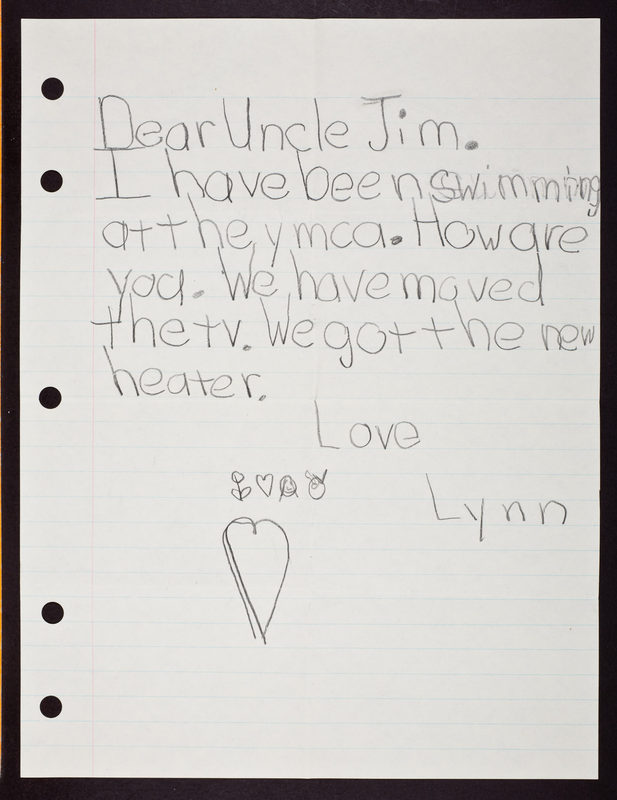 Dear Uncle Jim.
I have been swimming
at the ymca. How are
you. We have moved
the tv. We got the new
heater.
Love
Lynn